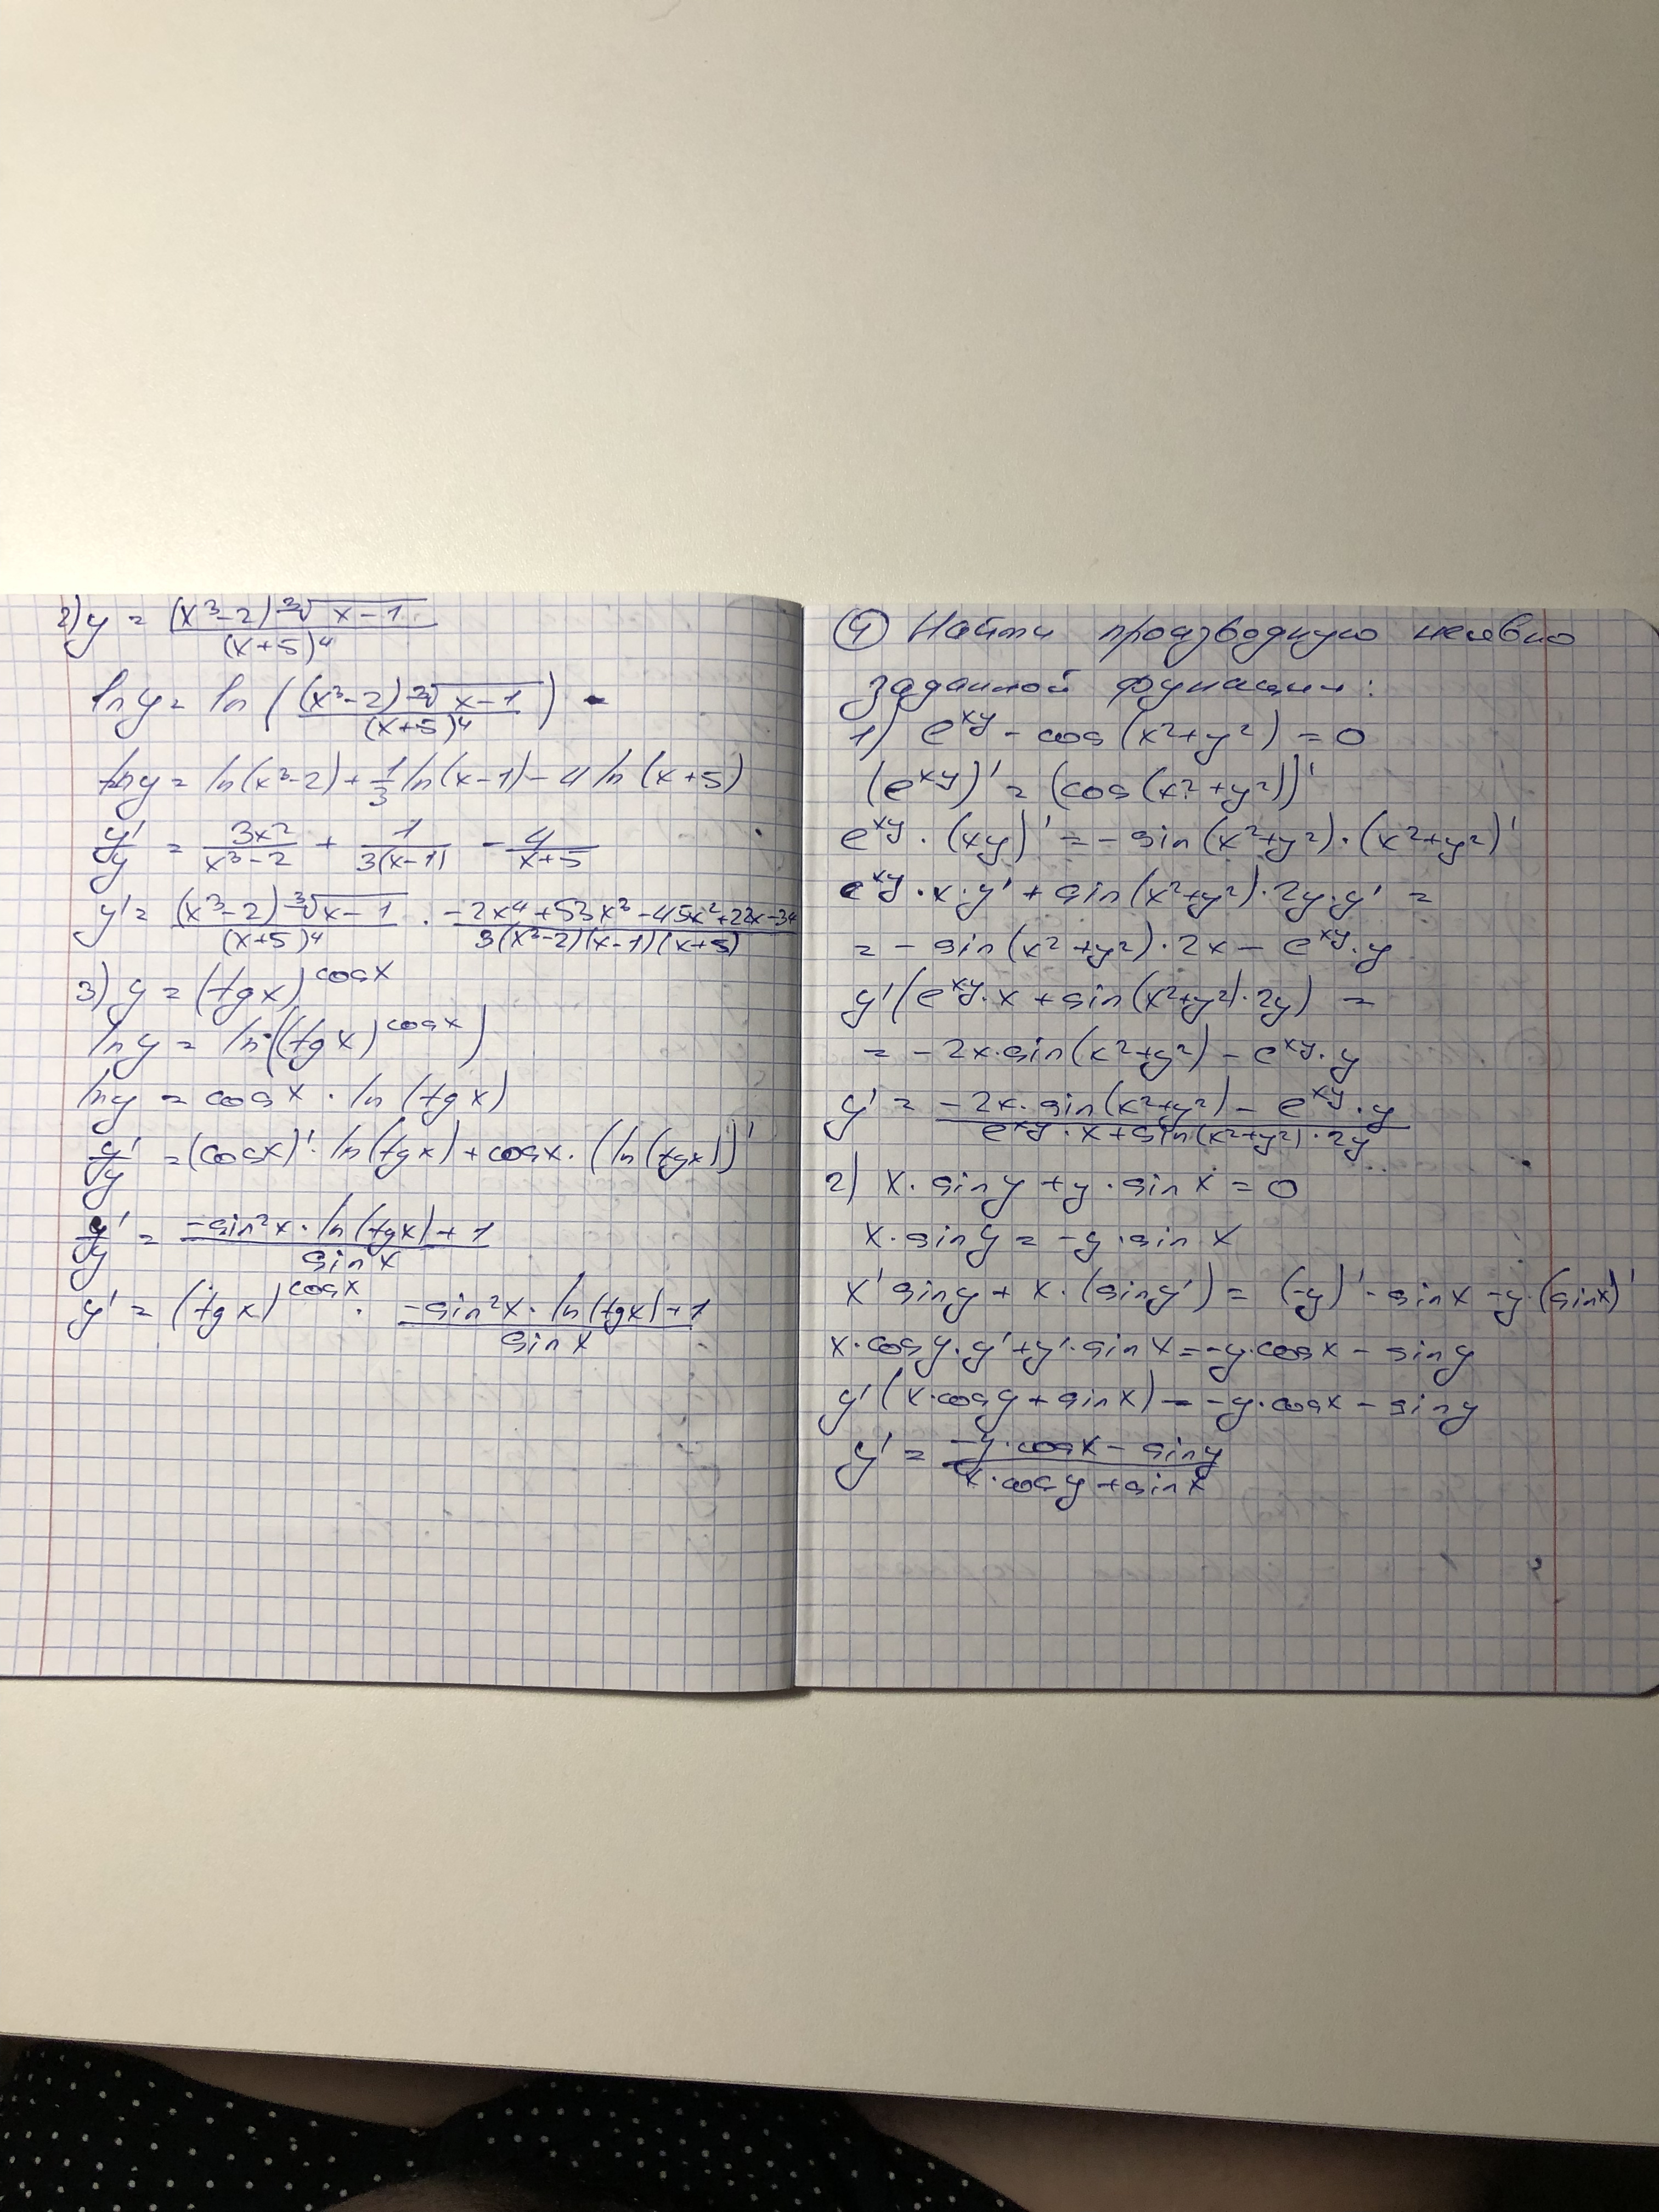 2) y = ((x³-2) ∛(x-1))/(x+5)⁴
ln y = ln ( ((x³-2) ∛(x-1))/(x+5)⁴ )
ln y = ln(x³-2) + 1/3 ln(x-1) - 4 ln(x+5)
y'/y = 3x²/(x³-2) + 1/(3(x-1)) - 4/(x+5)
y' = ((x³-2) ∛(x-1))/(x+5)⁴ · (-2x⁴+53x³-45x²+22x-34)/(3(x³-2)(x-1)(x+5))
3) y = (tgx)^cosx
ln y = ln((tgx)^cosx)
ln y = cosx · ln(tgx)
y'/y = (cosx)' · ln(tgx) + cosx · (ln(tgx))'
y'/y = (-sin²x · ln(tgx)+1)/sinx
y' = (tgx)^cosx · (-sin²x · ln(tgx)+1)/sinx
④ Найти производную неявно
заданной функции:
1) e^xy - cos(x²+y²) = 0
(e^xy)' = (cos(x²+y²))'
e^xy · (xy)' = - sin(x²+y²) · (x²+y²)'
e^xy · x · y' + sin(x²+y²) · 2y · y' =
= - sin(x²+y²) · 2x - e^xy · y
y'(e^xy · x + sin(x²+y²) · 2y) =
= - 2x · sin(x²+y²) - e^xy · y
y' = (-2x · sin(x²+y²) - e^xy · y)/(e^xy · x + sin(x²+y²) · 2y)
2) x · siny + y · sinx = 0
x · siny = -y · sinx
x' siny + x · (siny') = (-y)' · sinx - y · (sinx)'
x · cosy · y' + y' · sinx = -y · cosx - siny
y'(x · cosy + sinx) = -y · cosx - siny
y' = (-y · cosx - siny)/(x · cosy + sinx)